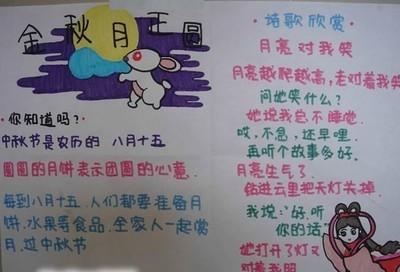 金秋月正圆
·你知道吗?·
中秋节是农历的 八月十五
圆圆的月饼表示团圆的心意.
每到八月十五.人们都要准备月
饼.水果等食品.全家人一起赏
月.过中秋节
·诗歌欣赏·
月亮对我笑
月亮越爬越高,老对着我笑
问她笑什么?
她说我总不睡觉.
哎,不急,还早哩.
再听个故事多好.
月亮生气了.
钻进云里把天灯关掉.
我说:"好.听
你的话."
她打开了灯又
对着我